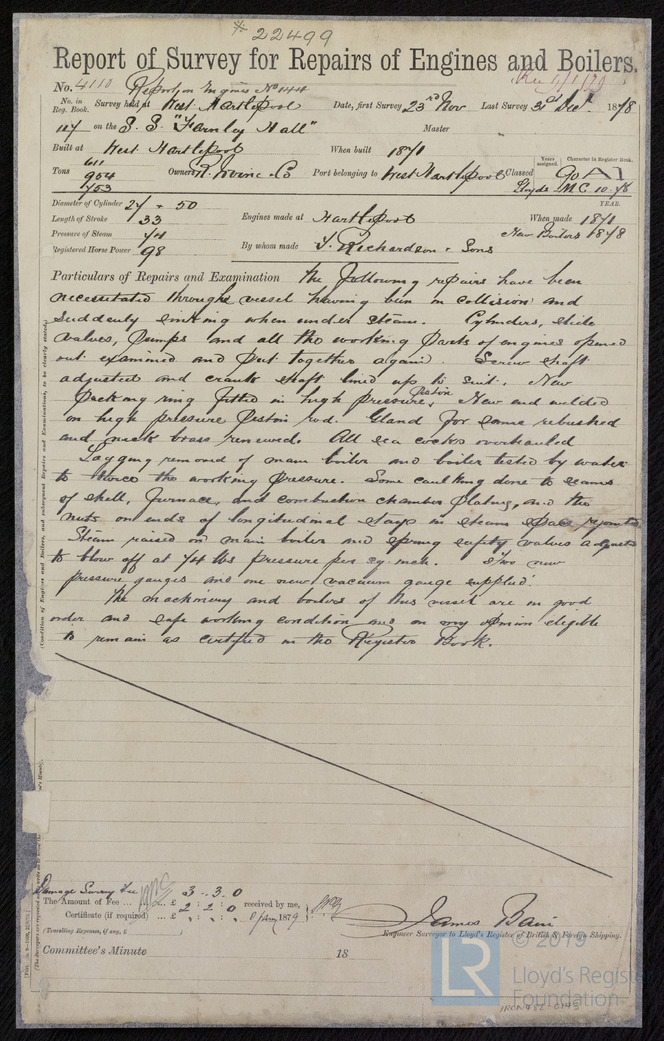 * 22499
Report of Survey for Repairs of Engines and Boilers.
No. 4110 Report on Engines No 144
No. in Reg. Book. Survey held at West Hartlepool Date, first Survey 23rd Nov Last Survey 31st Decr 1878
117 on the S. S. "Farnley Hall" Master
Built at West Hartlepool When built 1871
Years assigned. Character in Register Book.
Tons 611 954 1753 Owners R. Irvine & Co Port belonging to West Hartlepool Classed 90 A1
Lloyds M.C. 10.78
YEAR.
Diameter of Cylinder 27 + 50
Length of Stroke 33 Engines made at Hartlepool When made 1871
Pressure of Steam 74 New Boilers 1878
Registered Horse Power 98 By whom made T. Richardson & Sons
Particulars of Repairs and Examination The following repairs have been
necessitated through vessel having been in collision and
suddenly sinking when under steam. Cylinders, slide
valves, pumps and all the working parts of engines opened
out examined and put together again. Screw shaft
adjusted and crank shaft lined up to suit. New
packing ring fitted in high pressure piston. New end welded
on high pressure piston rod. Gland for same rebushed
and neck brass renewed. All sea cocks overhauled
Lagging removed of main boiler and boiler tested by water
to twice the working pressure. Some caulking done to seams
of shell, furnace, and combustion chamber plating, and the
nuts on ends of longitudinal stays in steam space rejointed
Steam raised on main boiler and spring safety valves adjusted
to blow off at 74 lbs pressure per sq inch. Two new
pressure gauges and one new vacuum gauge supplied.
The machinery and boilers of this vessel are in good
order and safe working condition and in my opinion eligible
to remain as certified in the Register Book.
(Condition of Engines and Boilers, and subsequent Repairs and Examinations, to be clearly stated.)
Damage Survey Fee 3 . 3 . 0
The Amount of Fee ... £ 2 : 2 : 0 received by me,
Certificate (if required) ... £ 1879
(Travelling Expenses, if any, £
James Bain
Engineer Surveyor to Lloyd's Register of British & Foreign Shipping.
Committee's Minute 18
© 2019
LR
Lloyd's Register
Foundation